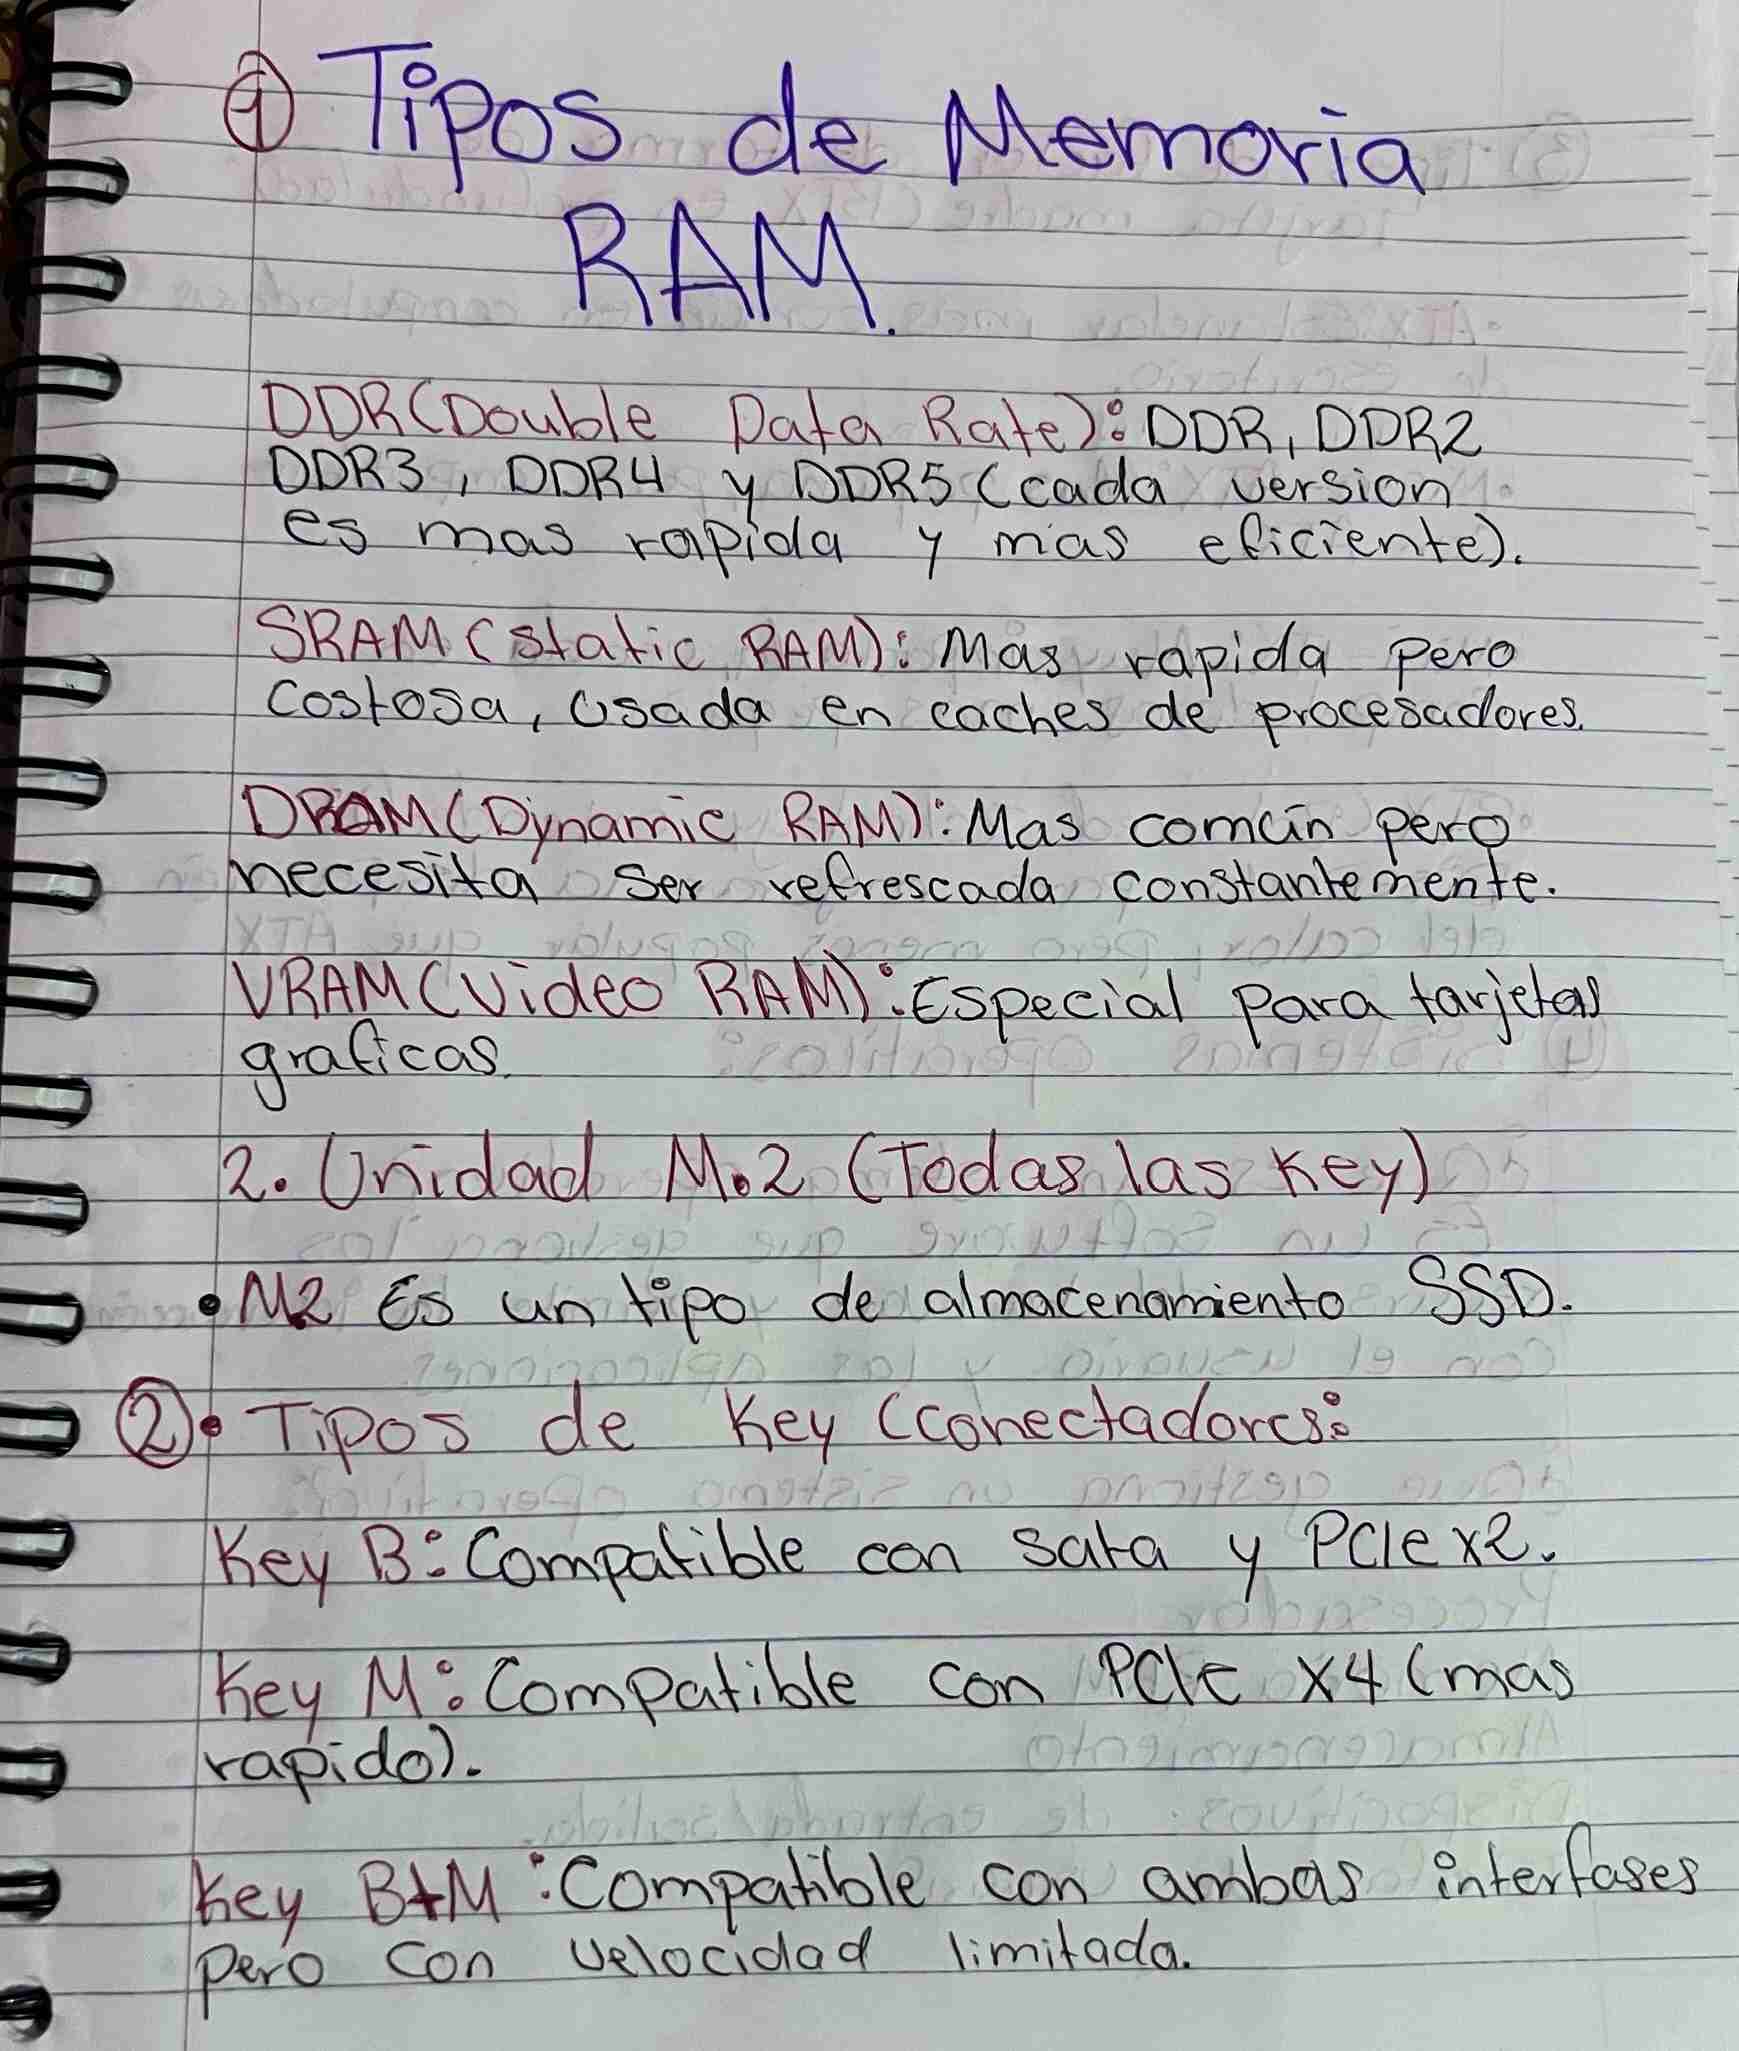 ① Tipos de Memoria
RAM.
DDR(Double Data Rate): DDR, DDR2
DDR3, DDR4 y DDR5 (cada version
es mas rapida y mas eficiente).
SRAM (static RAM): Mas rapida pero
costosa, usada en caches de procesadores.
DRAM(Dynamic RAM): Mas común pero
necesita ser refrescada constantemente.
VRAM(Video RAM): Especial para tarjetas
graficas.
2. Unidad M.2 (Todas las key)
• M2 Es un tipo de almacenamiento SSD.
②• Tipos de Key (conectadores:
Key B: Compatible con sata y PCIe x2.
Key M: Compatible con PCIe x4 (mas
rapido).
Key B+M: Compatible con ambas interfases
pero con velocidad limitada.